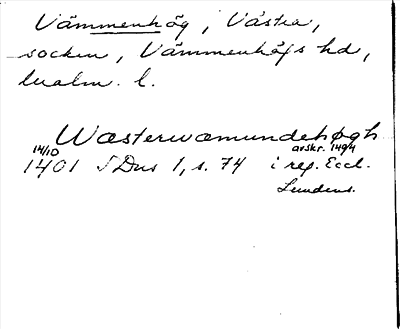 Vämmenhög, Västra,
socken, Vämmenhögs hd,
Malm. l.
Wæsterwæmundehøgh
14/10 avskr. 1494
1401 SDns 1, s. 74 i reg. Eccl.
Lundens.